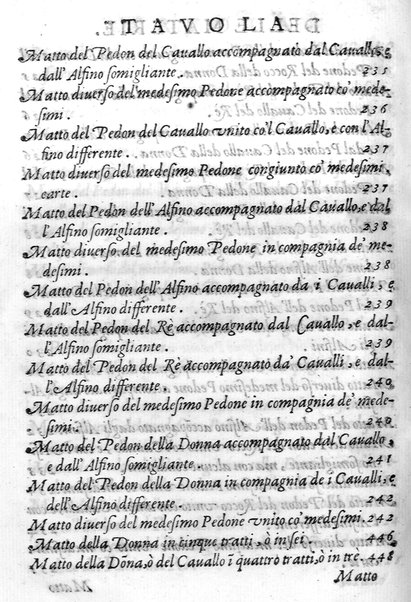 TAVOLA
Matto del Pedon del Cauallo accompagnato dal Cauallo, e
dall'Alfino somigliante. 235
Matto diuerso del medesimo Pedone accompagnato co' mede-
simi. 236
Matto del Pedon del Cauallo vnito co'l Cauallo, e con l'Al-
fino differente. 237
Matto diuerso del medesimo Pedone congiunto co' medesimi,
earte. 237
Matto del Pedon dell'Alfino accompagnato dal Cauallo, e dal
l'Alfino somigliante. 238
Matto diuerso del medesimo Pedone in compagnia de' me-
desimi. 238
Matto del Pedon dell'Alfino accompagnato da i Caualli, e
dall'Alfino differente. 239
Matto del Pedon del Rè accompagnato dal Cauallo, e dal-
l'Alfino somigliante. 239
Matto del Pedon del Rè accompagnato da' Caualli, e dal-
l'Alfino differente. 240
Matto diuerso del medesimo Pedone in compagnia de' mede-
simi. 240
Matto del Pedon della Donna accompagnato dal Cauallo,
e dall'Alfino somigliante. 241
Matto del Pedon della Donna in compagnia de i Caualli, e
dell'Alfino differente. 242
Matto diuerso del medesimo Pedone vnito co' medesimi. 242
Matto della Donna in cinque tratti, ò in sei. 446
Matto della Dōna, ò del Cauallo ī quattro tratti, ò in tre. 448
Matto